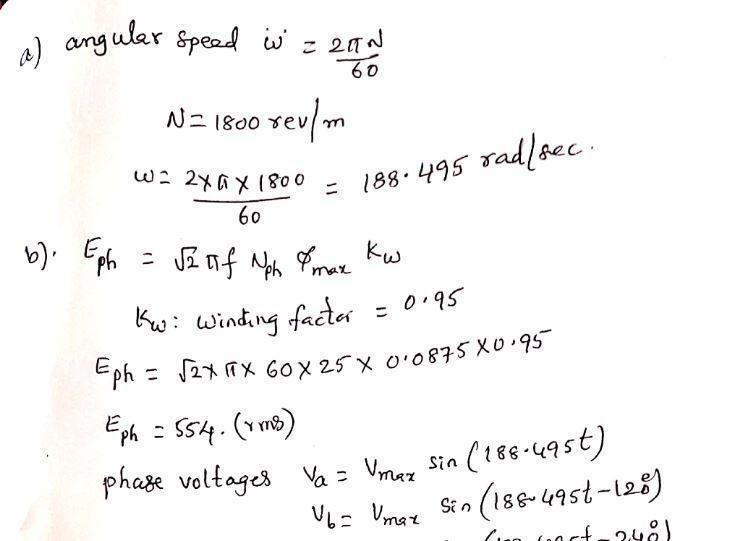 a) angular speed ω = 2πN/60
N = 1800 rev/m
ω = 2×π×1800/60 = 188.495 rad/sec.
b). Eph = √2 πf Nph φmax Kw
Kw: winding factor = 0.95
Eph = √2×π×60×25×0.0875×0.95
Eph = 554. (rms)
phase voltages Va = Vmax sin(188.495t)
Vb = Vmax Sin(188.495t-120°)
t-240°)